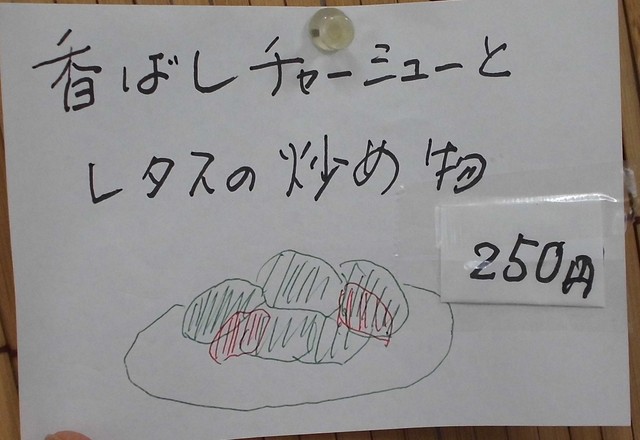 香ばしチャーミューと
レタスの炒め物
250円